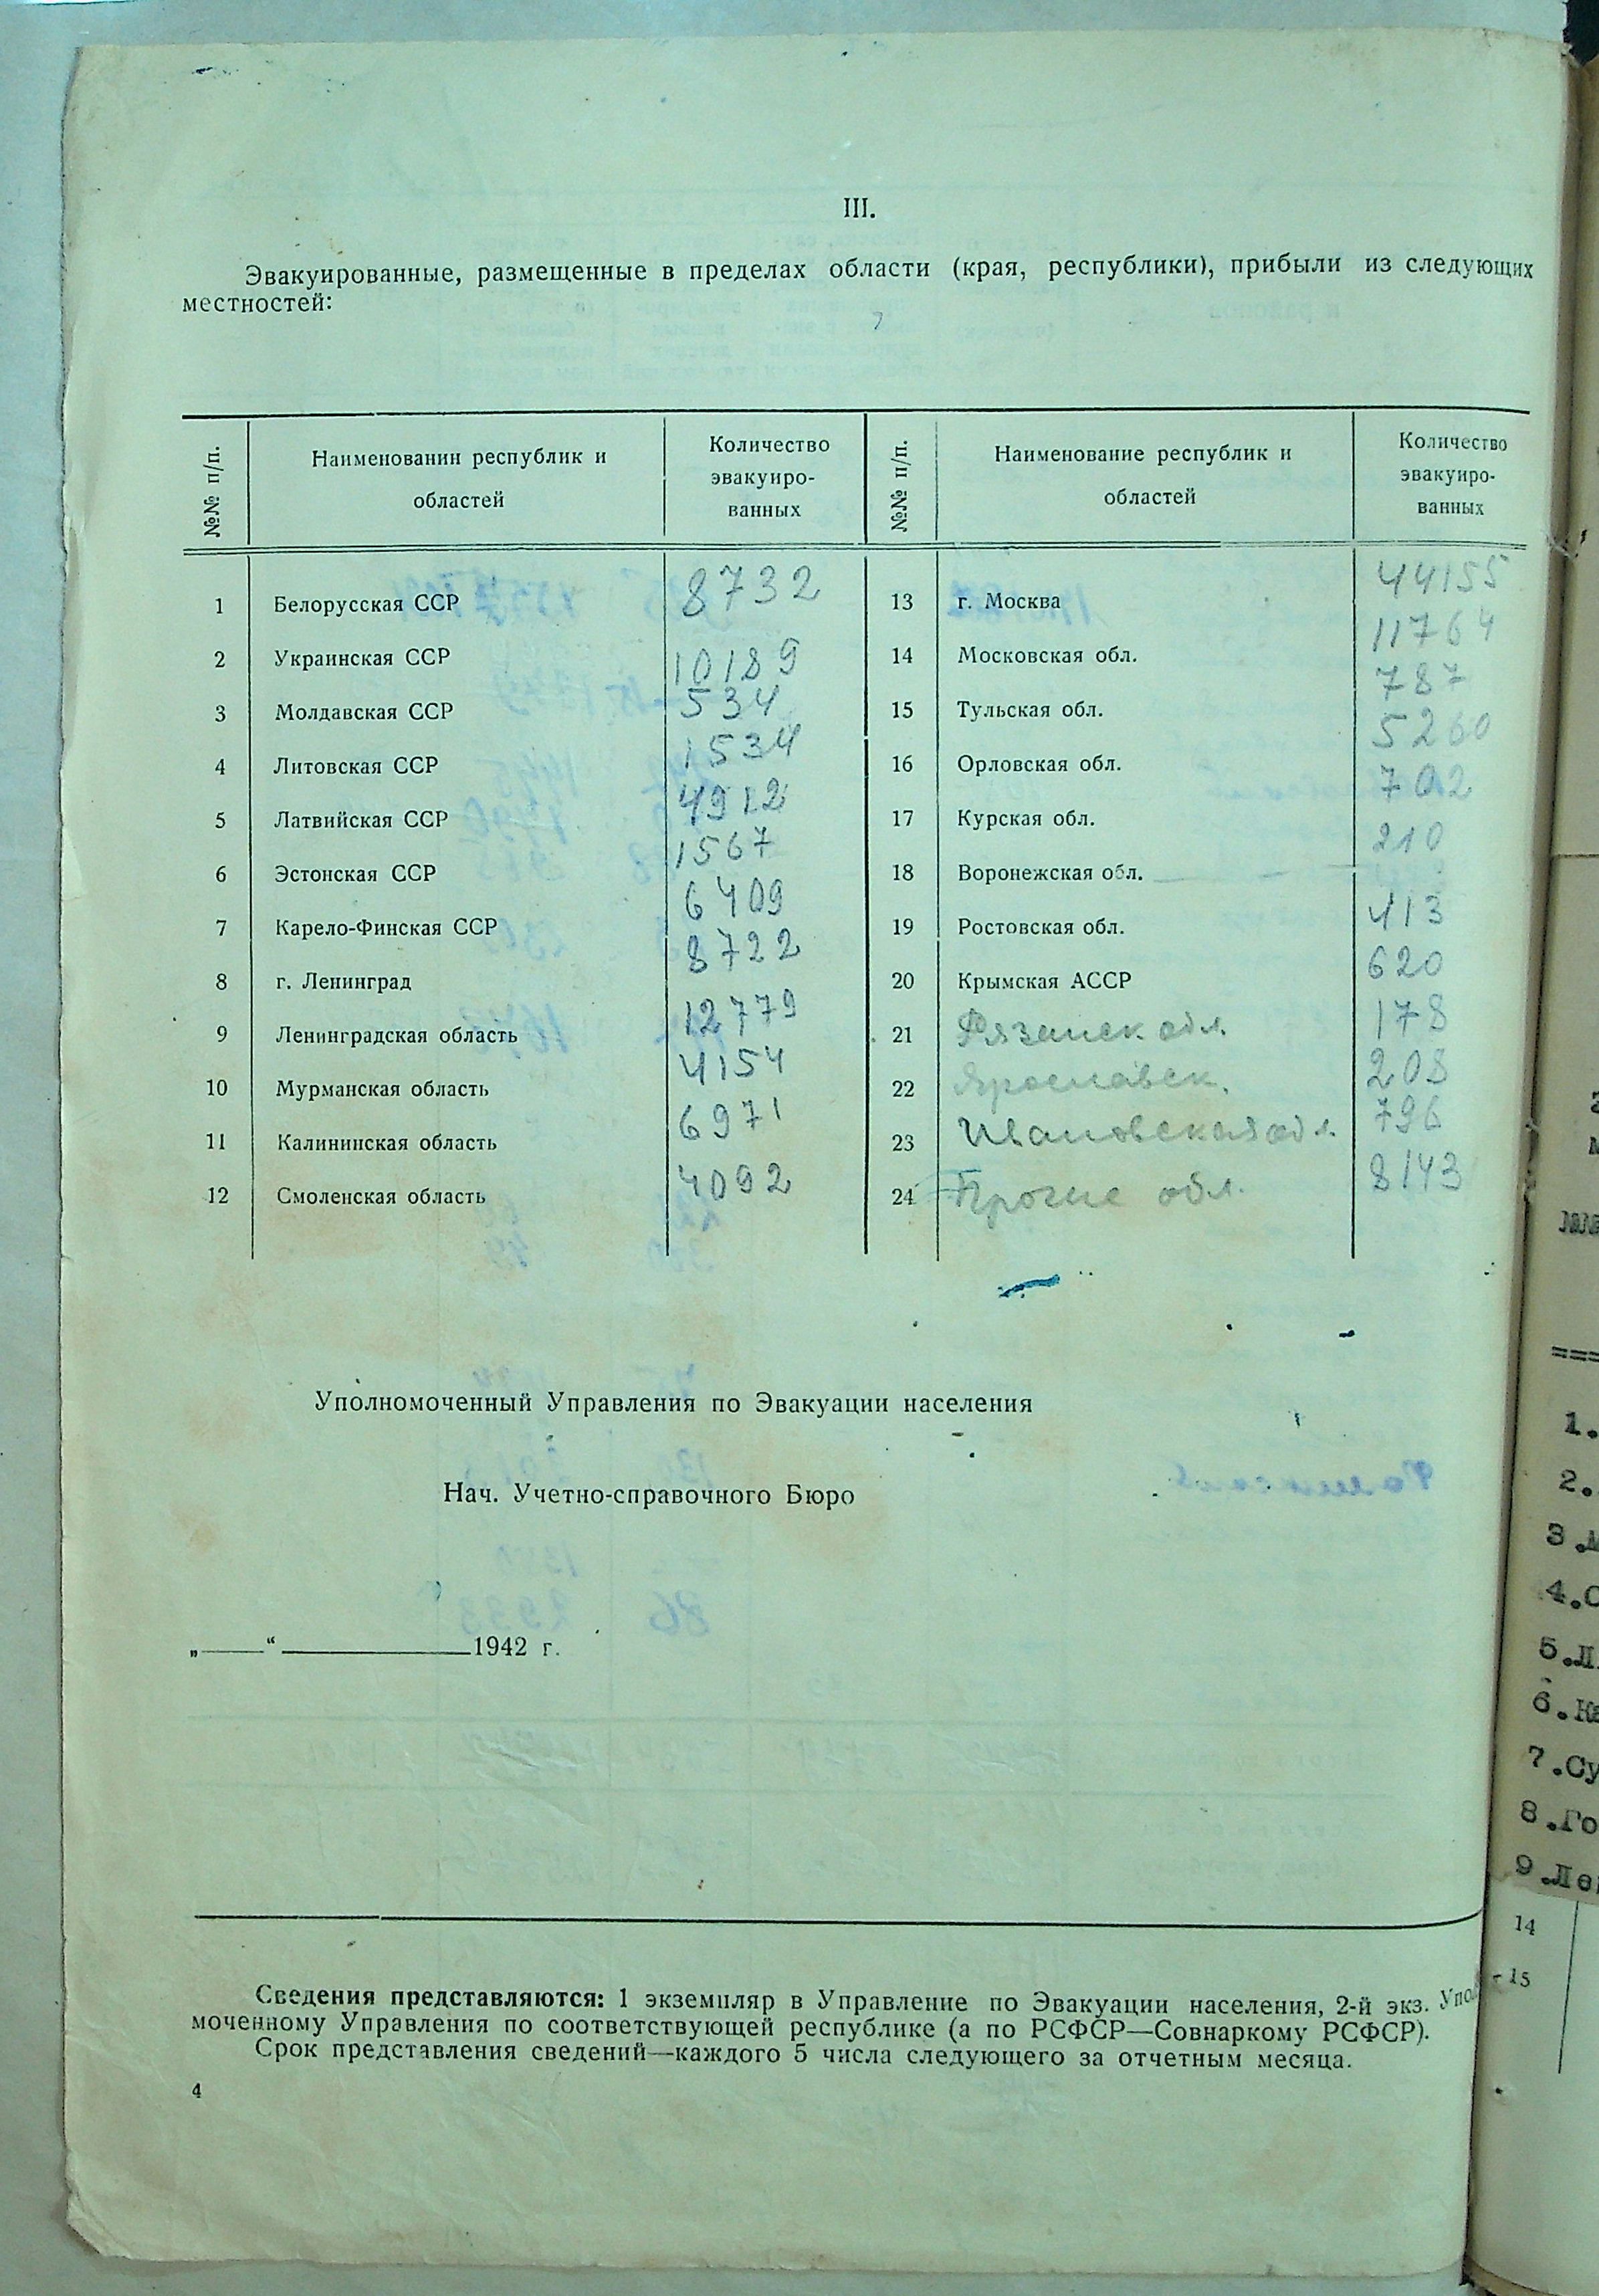 III.
Эвакуированные, размещенные в пределах области (края, республики), прибыли из следующих
местностей:
№№ п/п. Наименованин республик и областей Количество эвакуиро-ванных №№ п/п. Наименование республик и областей Количество эвакуиро-ванных
1 Белорусская ССР 8732 13 г. Москва 44155
2 Украинская ССР 10189 14 Московская обл. 11764
3 Молдавская ССР 534 15 Тульская обл. 787
4 Литовская ССР 1534 16 Орловская обл. 5260
5 Латвийская ССР 4912 17 Курская обл. 702
6 Эстонская ССР 1567 18 Воронежская обл. 210
7 Карело-Финская ССР 6409 19 Ростовская обл. 413
8 г. Ленинград 8722 20 Крымская АССР 620
9 Ленинградская область 12779 21 Рязанск обл. 178
10 Мурманская область 4154 22 Ярославск. 208
11 Калининская область 6971 23 Ивановская обл. 796
12 Смоленская область 4092 24 Прочие обл. 8143
Уполномоченный Управления по Эвакуации населения
Нач. Учетно-справочного Бюро
„——“ ————1942 г.
Сведения представляются: 1 экземпляр в Управление по Эвакуации населения, 2-й экз. Упол-
моченному Управления по соответствующей республике (а по РСФСР—Совнаркому РСФСР).
Срок представления сведений—каждого 5 числа следующего за отчетным месяца.
4
1.
2.
3.
4.
5.
6.
7.
8.
9.
14
15